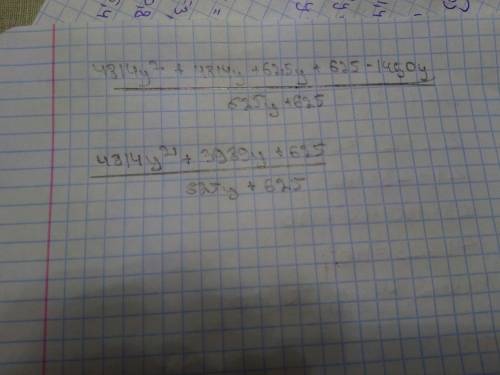 4314y² + 4314y + 625y + 625 - 1490y
625y + 625
4314y² + 3939y + 625
625y + 625